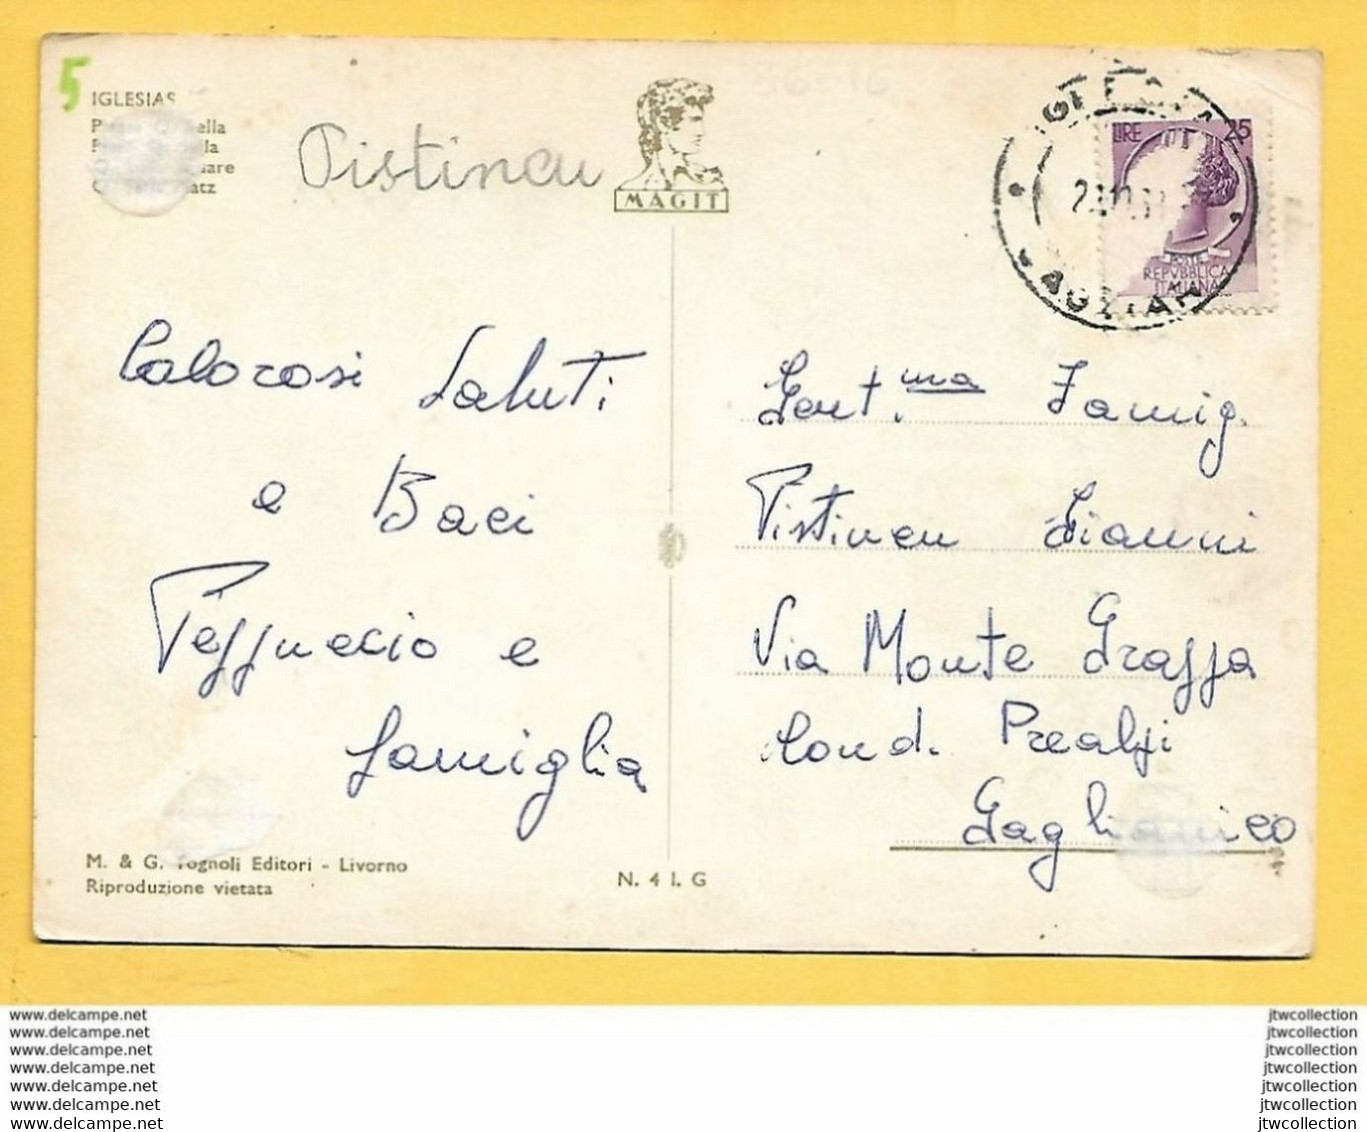 5
IGLESIAS
Pistincu
MAGIT
LIRE 25
POSTE
REPVBBLICA
ITALIANA
Calorosi Saluti
e Baci
Peppuccio e
famiglia
Gent.ma Famig.
Pistincu Gianni
Via Monte Grappa
Cond. Prealpi
Gaglianico
M. & G. Tognoli Editori - Livorno
Riproduzione vietata
N. 4 I. G
www.delcampe.net
www.delcampe.net
www.delcampe.net
www.delcampe.net
www.delcampe.net
www.delcampe.net
www.delcampe.net
jtwcollection
jtwcollection
jtwcollection
jtwcollection
jtwcollection
jtwcollection
jtwcollection